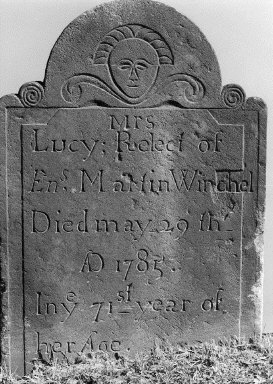 Mrs
Lucy; Relect of
Ens. Martin Winchel
Died may 29 th
AD 1785.
In ye 71st year of
her Age.